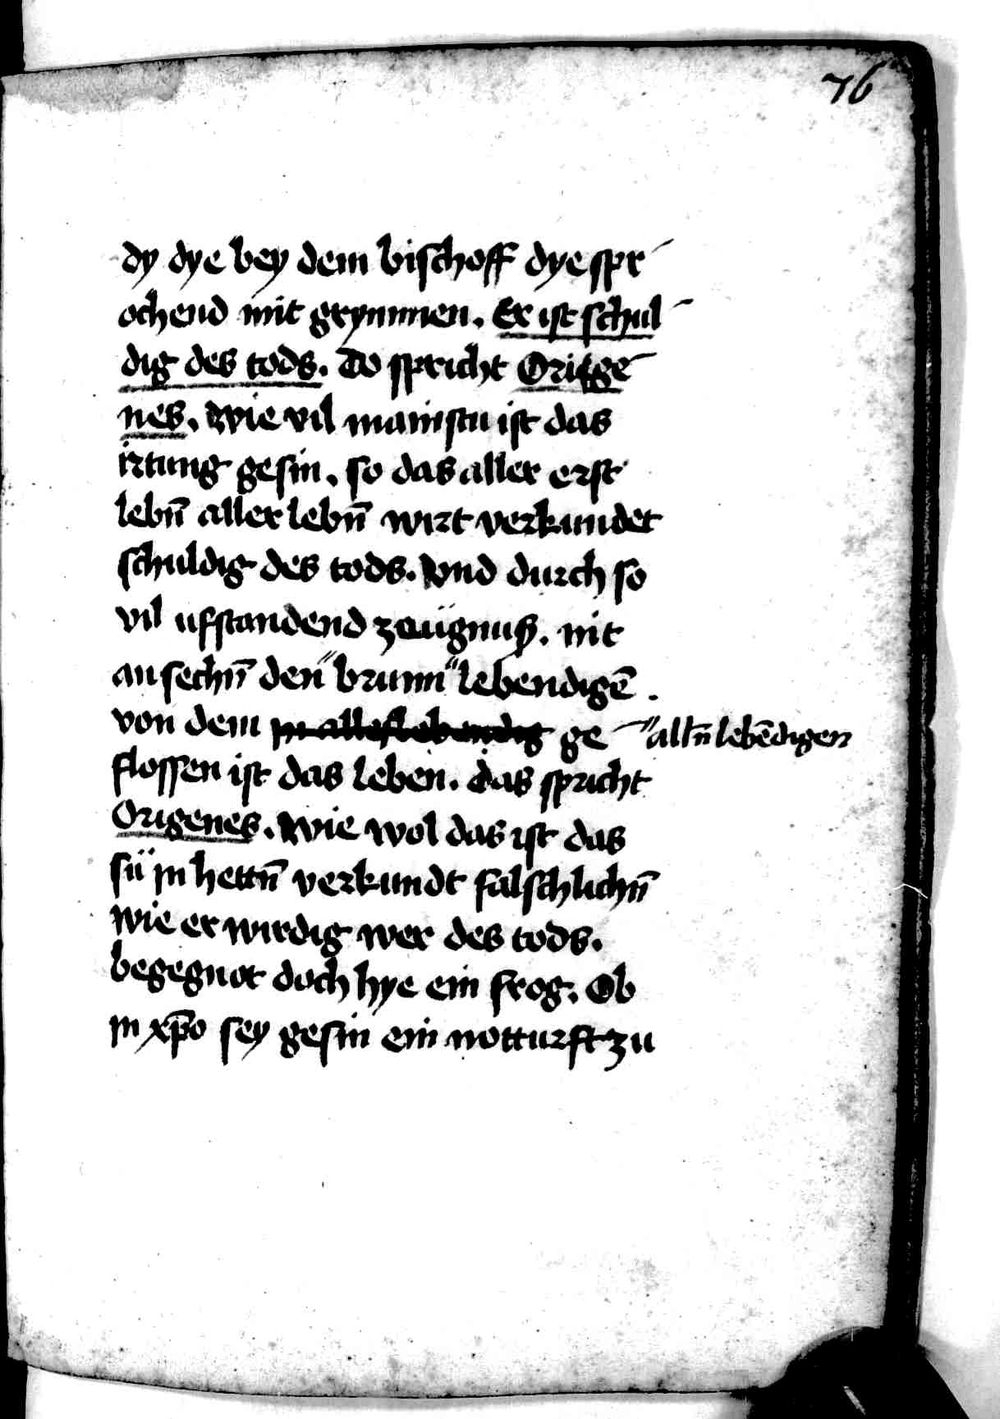 76
dy dye bey dem bischoff dye spr
ochend mit grymmen. Er ist schul
dig des tods. Do spricht Orige
nes. Wie vil mainstu ist das
irtung gesin, so das aller erst
lebn̄ aller lebn̄ wirt verkundet
schuldig des tods. Vnd durch so
vil ufstandend zeügnuß. nit
an sechn̄ den " brunn " lebendigē.
von dem ge " alln̄ lebēdigen
flossen ist das leben. das spricht
Origenes. Wie wol das ist das
sü in hettn̄ verkundt falschlichn̄
wie er wirdig wer des tods.
begegnot doch hye ein frog. Ob
in xp̄o sey gesin ein notturft zu